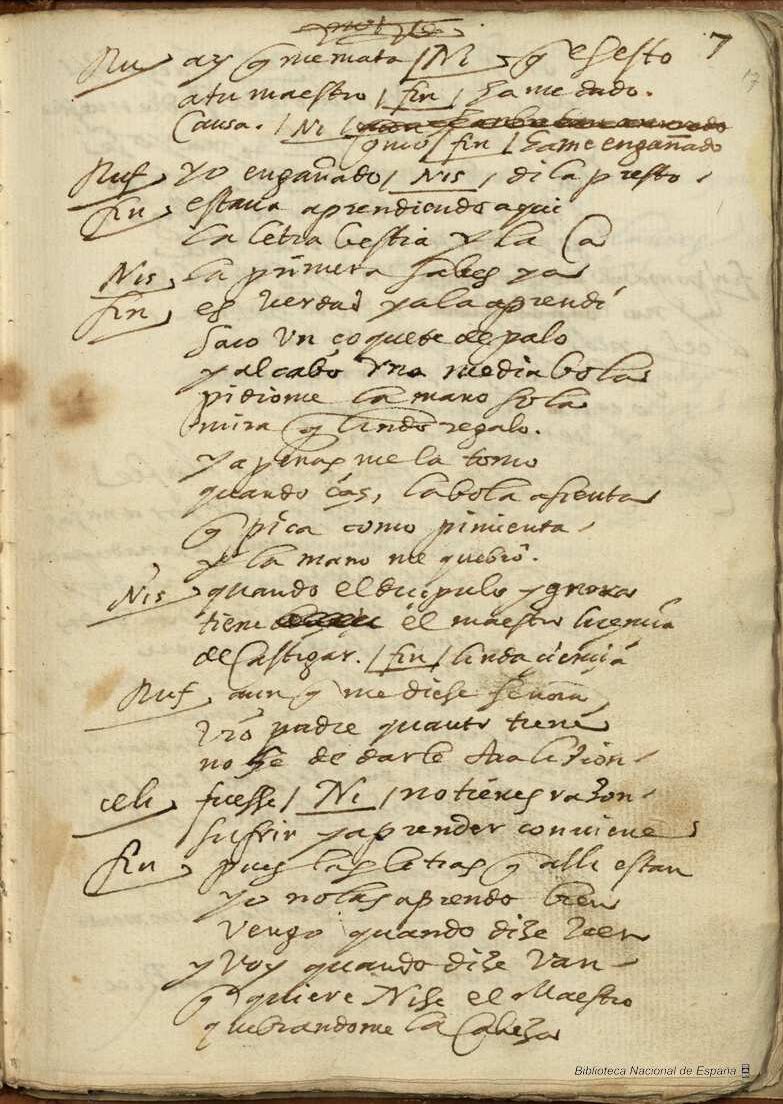 7
17
Ru ay q me mata / Ni q es esto
a tu maestro / fin / ha me dado.
Causa. / Ni /
q mio / fin / ha me engañado
Ruf yo engañado / Nis / di la presto
fin estava aprendiendo aqui
la letra bestia y la Ca
Nis la primera sabes ya
fin es verdad ya la aprendi
Saco un çoquete de palo
y al cabo una media bola
pidiome la mano sola
mira q lindo regalo.
y apenas me la tomo
quando ças, la bola asienta
q pica como pimienta
y la mano me quebro.
Nis quando el dicipulo ygnora
tiene el maestro licencia
de Castigar. / fin / linda ciencia
Ruf aun q me diese señora
vro padre quanto tiene
no he de darle otra lizion
celi fuesse / Ni / no tienes razon
sufrir y aprender conviene
fin pues las letras q alli estan
yo no las aprendo bien
vengo quando dize ven
y voy quando dize van
q quiere Nise el Maestro
quebrandome la Cabeza
Biblioteca Nacional de España